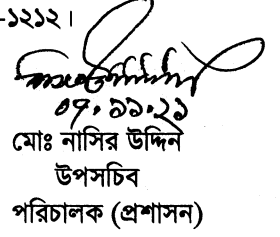 -১২১২।
০৭.১১.২১
মোঃ নাসির উদ্দিন
উপসচিব
পরিচালক (প্রশাসন)